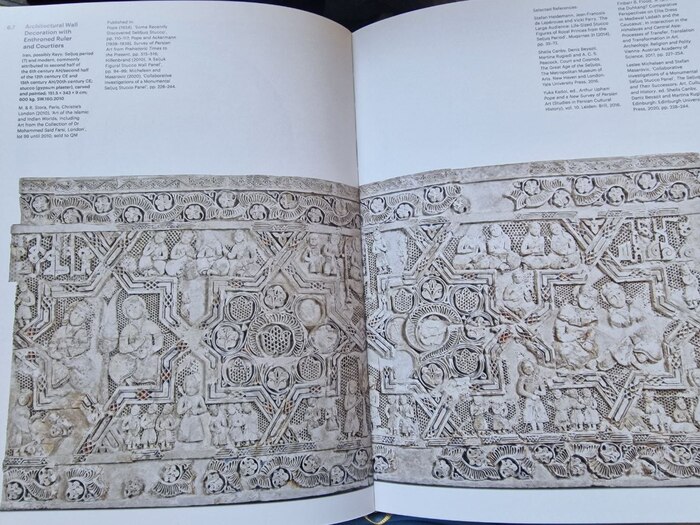 67
Architectural Wall
Decoration with
Enthroned Ruler
and Courtiers
Iran, possibly Rayy. Seljuq period
(?) and modern, commonly
attributed to second half of
the 6th century AH/second half
of the 12th century CE and
13th century AH/20th century CE;
stucco (gypsum plaster), carved
and painted. 151.5 × 343 × 9 cm;
600 kg. SW.160.2010
M. & R. Stora, Paris; Christie's
London (2010), 'Art of the Islamic
and Indian Worlds, Including
Art from the Collection of Dr
Mohammed Said Farsi, London',
lot 99 until 2010; sold to QM
Published in
Pope (1934) "Some Recently
Discovered Seljūq Stucco",
pp. 110–117; Pope and Ackerman
(1938–1939), Survey of Persian
Art from Prehistoric Times to
the Present, pls. 515–516;
Hillenbrand (2010), "A Saljuq
Figural Stucco Wall Panel",
pp. 94–99; Michelsen and
Masarovic (2020), "Collaborative
Investigations of a Monumental
Seljuq Stucco Panel", pp. 228–244.
Selected References
Stefan Heidemann, Jean-François
de Lapérouse and Vicki Parry. The
Large Audience: Life-Sized Stucco
Figures of Royal Princes from the
Seljuq Period.
pp. 35–71.
Sheila Canby, Deniz Beyazit,
Martina Rugiadi and A. C. S.
Peacock. Court and Cosmos:
The Great Age of the Seljuqs.
The Metropolitan Museum of
Art, New Haven and London:
Yale University Press, 2016.
Yuka Kadoi, ed., Arthur Upham
Pope and a New Survey of Persian
Art (Studies in Persian Cultural
History), vol. 10. Leiden: Brill, 2016.
Finbarr B. Flood.
Comparative Perspectives
on Elite Dress
in Medieval Ladakh and the
Caucasus". In Interaction in the
Himalayas and Central Asia:
Processes of Transfer, Translation
and Transformation in Art,
Archaeology, Religion and Polity.
Vienna: Austrian Academy of
Science, 2017, pp. 227–254.
Leslee Michelsen and Stefan
Masarovic. "Collaborative
Investigations of a Monumental
Seljuq Stucco Panel".
and Their Successors: Art, Culture
and History, ed. Sheila Canby,
Deniz Beyazit and Martina Rugiadi.
Edinburgh: Edinburgh University
Press, 2020, pp. 228–244.